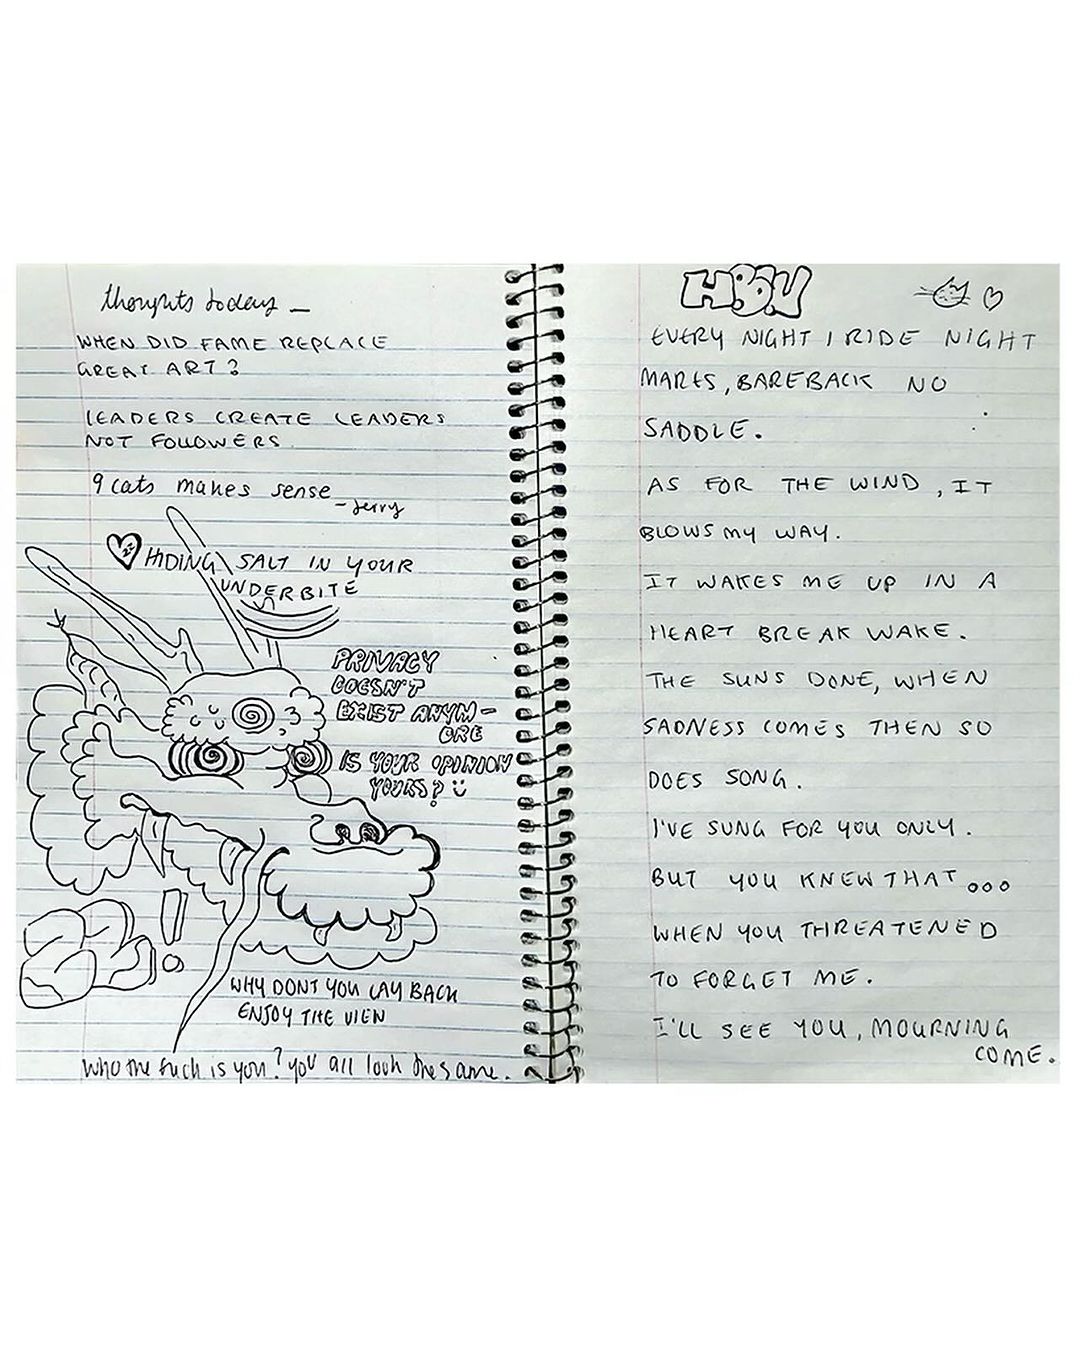 thoughts today _
WHEN DID FAME REPLACE
GREAT ART?
LEADERS CREATE LEADERS
NOT FOLLOWERS
9 cats makes sense
- Jerry
HIDING SALT IN YOUR
UNDERBITE
PRIVACY
DOESN'T
EXIST ANYM-
ORE
IS YOUR OPINION
YOURS?
WHY DONT YOU LAY BACK
ENJOY THE VIEW
who the fuck is you? you all look the same.
EVERY NIGHT I RIDE NIGHT
MARES, BAREBACK NO
SADDLE.
AS FOR THE WIND, IT
BLOWS MY WAY.
IT WAKES ME UP IN A
HEART BREAK WAKE.
THE SUNS DONE, WHEN
SADNESS COMES THEN SO
DOES SONG.
I'VE SUNG FOR YOU ONLY.
BUT YOU KNEW THAT...
WHEN YOU THREATENED
TO FORGET ME.
I'LL SEE YOU, MOURNING
COME.